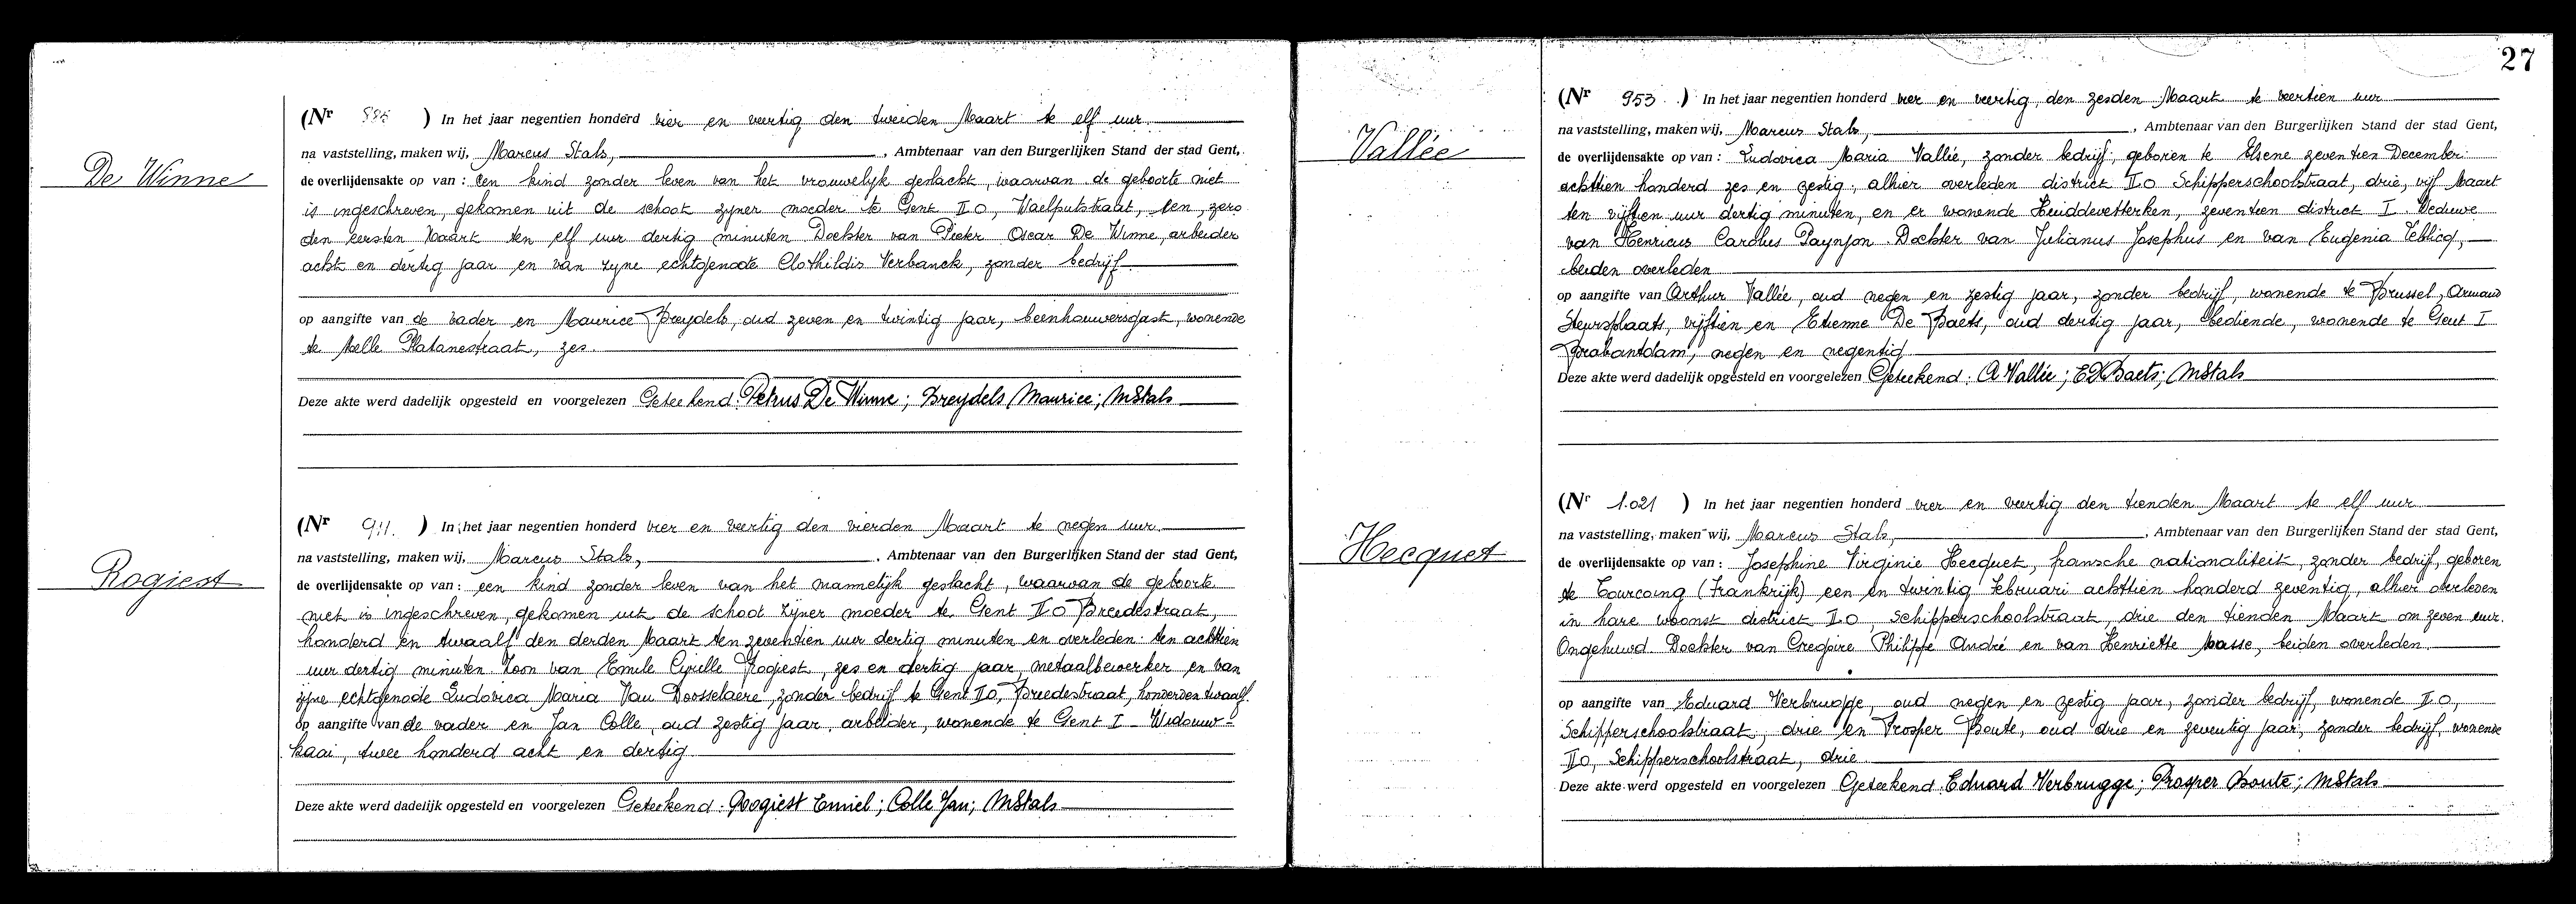 De Winne
(Nr 886 ) In het jaar negentien honderd vier en veertig den tweeden Maart te elf uur
na vaststelling, maken wij, Marcus Stals, , Ambtenaar van den Burgerlijken Stand der stad Gent,
de overlijdensakte op van : een kind zonder leven van het vrouwelijk geslacht, waarvan de geboorte niet
is ingeschreven, gekomen uit de schoot zyner moeder te Gent II O, Waelputstraat, een, zero
den eersten Maart ten elf uur dertig minuten Dochter van Pieter Oscar De Winne, arbeider
acht en dertig jaar en van zyne echtgenoote Clothildis Verbanck, zonder bedrijf
op aangifte van de vader en Maurice Breydels, oud zeven en twintig jaar, beenhouwersgast, wonende
te Melle Platanestraat, zes.
Deze akte werd dadelijk opgesteld en voorgelezen Geteekend: Petrus De Winne; Breydels Maurice; MStals
Rogiest
(Nr 911. ) In het jaar negentien honderd vier en veertig den vierden Maart te negen uur
na vaststelling, maken wij, Marcus Stals, . Ambtenaar van den Burgerlijken Stand der stad Gent,
de overlijdensakte op van : een kind zonder leven van het mannelijk geslacht, waarvan de geboorte
niet is ingeschreven, gekomen uit de schoot zijner moeder te Gent II O Breedestraat,
honderd en twaalf den derden Maart ten zeventien uur dertig minuten en overleden ten achttien
uur dertig minuten Zoon van Emile Cyrille Rogiest, zes en dertig jaar, metaalbewerker en van
zijne echtgenode Ludovica Maria Van Doosselaere, zonder bedrijf te Gent II O, Breedestraat, honderdentwaalf.
op aangifte van de vader en Jan Colle, oud zestig jaar, arbeider, wonende te Gent I Wiedauw-
kaai, twee honderd acht en dertig
Deze akte werd dadelijk opgesteld en voorgelezen Geteekend: Rogiest Emiel; Colle Jan; MStals
27
Vallée
(Nr 953 ) In het jaar negentien honderd vier en veertig, den zesden Maart te veertien uur
na vaststelling, maken wij, Marcus Stals, , Ambtenaar van den Burgerlijken Stand der stad Gent,
de overlijdensakte op van : Ludovica Maria Vallée, zonder bedrijf, geboren te Elsene zeventien December
achttien honderd zes en zestig, alhier overleden district II O Schipperschoolstraat, drie, vijf Maart
ten vijftien uur dertig minuten, en er wonende Huiddevetterken, zeventien district I. Weduwe
van Henricus Carolus Dochter van Julianus Josephus en van Eugenia
beiden overleden
op aangifte van Arthur Vallée, oud negen en zestig jaar, zonder bedrijf, wonende te Brussel, Armand
Steursplaats, vijftien en Etienne De Baets, oud dertig jaar, bediende, wonende te Gent I
Brabantdam, negen en negentig
Deze akte werd dadelijk opgesteld en voorgelezen Geteekend: A Vallée; E D Baets; MStals
Hecquet
(Nr 1.021 ) In het jaar negentien honderd vier en veertig den tienden Maart te elf uur
na vaststelling, maken wij, Marcus Stals, , Ambtenaar van den Burgerlijken Stand der stad Gent,
de overlijdensakte op van : Josephine Virginie Hecquet, fransche nationaliteit, zonder bedrijf, geboren
te Tourcoing (Frankrijk) een en twintig Februari achttien honderd zeventig, alhier overleden
in hare woonst district II O, Schipperschoolstraat, drie den tienden Maart om zeven uur.
Ongehuwd Dochter van Gregoire Philippe André en van Henriette Masse, beiden overleden
op aangifte van Eduard Verbrugge, oud negen en zestig jaar, zonder bedrijf, wonende II O,
Schipperschoolstraat, drie en Prosper Boute, oud drie en zeventig jaar, zonder bedrijf, wonende
II O, Schipperschoolstraat, drie
Deze akte werd opgesteld en voorgelezen Geteekend: Eduard Verbrugge; Prosper Boute; MStals